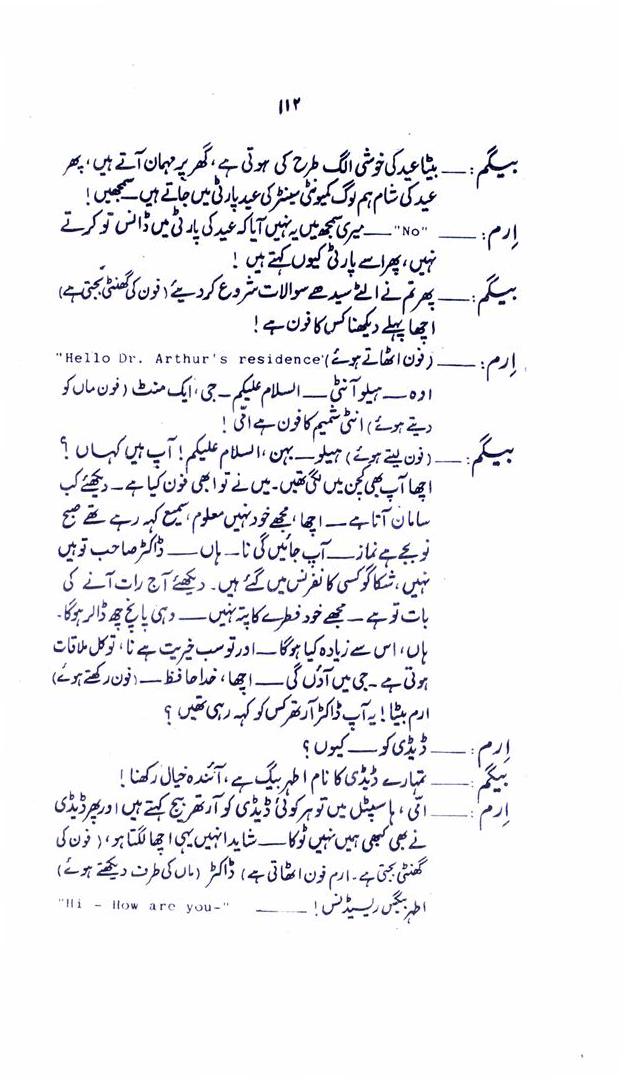 ۱۱۲
بیگم: ــــ بیٹا عید کی خوشی الگ طرح کی ہوتی ہے، گھر پر مہمان آتے ہیں، پھر
عید کی شام ہم لوگ کمیونٹی سینٹر کی عید پارٹی میں جاتے ہیں ــ سمجھیں!
اِرم: ــــ "No" ــــ میری سمجھ میں یہ نہیں آیا کہ عید کی پارٹی میں ڈانس تو کرتے
نہیں، پھر اسے پارٹی کیوں کہتے ہیں!
بیگم: ــــ پھر تم نے الٹے سیدھے سوالات شروع کر دیئے (فون کی گھنٹی بجتی ہے)
اچھا پہلے دیکھنا کس کا فون ہے!
اِرم: ــــ (فون اٹھاتے ہوئے) "Hello Dr. Arthur's residence"
اوہ ــــ ہیلو آنٹی ــــ السلام علیکم ــ جی، ایک منٹ (فون ماں کو
دیتے ہوئے) انٹی شمیم کا فون ہے امّی!
بیگم: ــــ (فون لیتے ہوئے) ہیلو ــــ بہن، السلام علیکم! آپ ہیں کہاں؟
اچھا آپ بھی کچن میں لگی تھیں۔ میں نے تو ابھی فون کیا ہے ــ دیکھئے کب
سامان آتا ہے ــــ اچھا، مجھے خود نہیں معلوم، سمیع کہہ رہے تھے صبح
نو بجے ہے نماز ــــ آپ جائیں گی نا ــ ہاں ــــ ڈاکٹر صاحب تو ہیں
نہیں، شکاگو کسی کانفرنس میں گئے ہیں۔ دیکھئے آج رات آنے کی
بات تو ہے ــ مجھے خود فطرے کا پتہ نہیں ــــ وہی پانچ چھ ڈالر ہوگا۔
ہاں، اس سے زیادہ کیا ہوگا ــــ اور تو سب خیریت ہے نا، تو کل ملاقات
ہوتی ہے ــ جی میں آؤں گی ــــ اچھا، خدا حافظ ــــ (فون رکھتے ہوئے)
ارم بیٹا! یہ آپ ڈاکٹر آرتھر کس کو کہہ رہی تھیں؟
اِرم: ــــ ڈیڈی کو ــــ کیوں؟
بیگم: ــــ تمہارے ڈیڈی کا نام اطہر بیگ ہے، آئندہ خیال رکھنا!
اِرم: ــــ امّی، ہاسپٹل میں تو ہر کوئی ڈیڈی کو آرتھر بیج کہتے ہیں اور پھر ڈیڈی
نے بھی کبھی ہمیں نہیں ٹوکا ــــ شاید انہیں یہی اچھا لگتا ہو، (فون کی
گھنٹی بجتی ہے۔ ارم فون اٹھاتی ہے) ڈاکٹر (ماں کی طرف دیکھتے ہوئے)
اطہر بیگس ریسیڈنس! ــــ "Hi - How are you-"